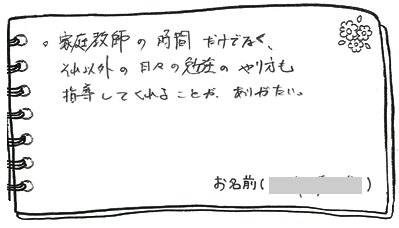 。家庭教師の時間だけでなく、
それ以外の日々の勉強のやり方も
指導してくれることが、ありがたい。
お名前( )